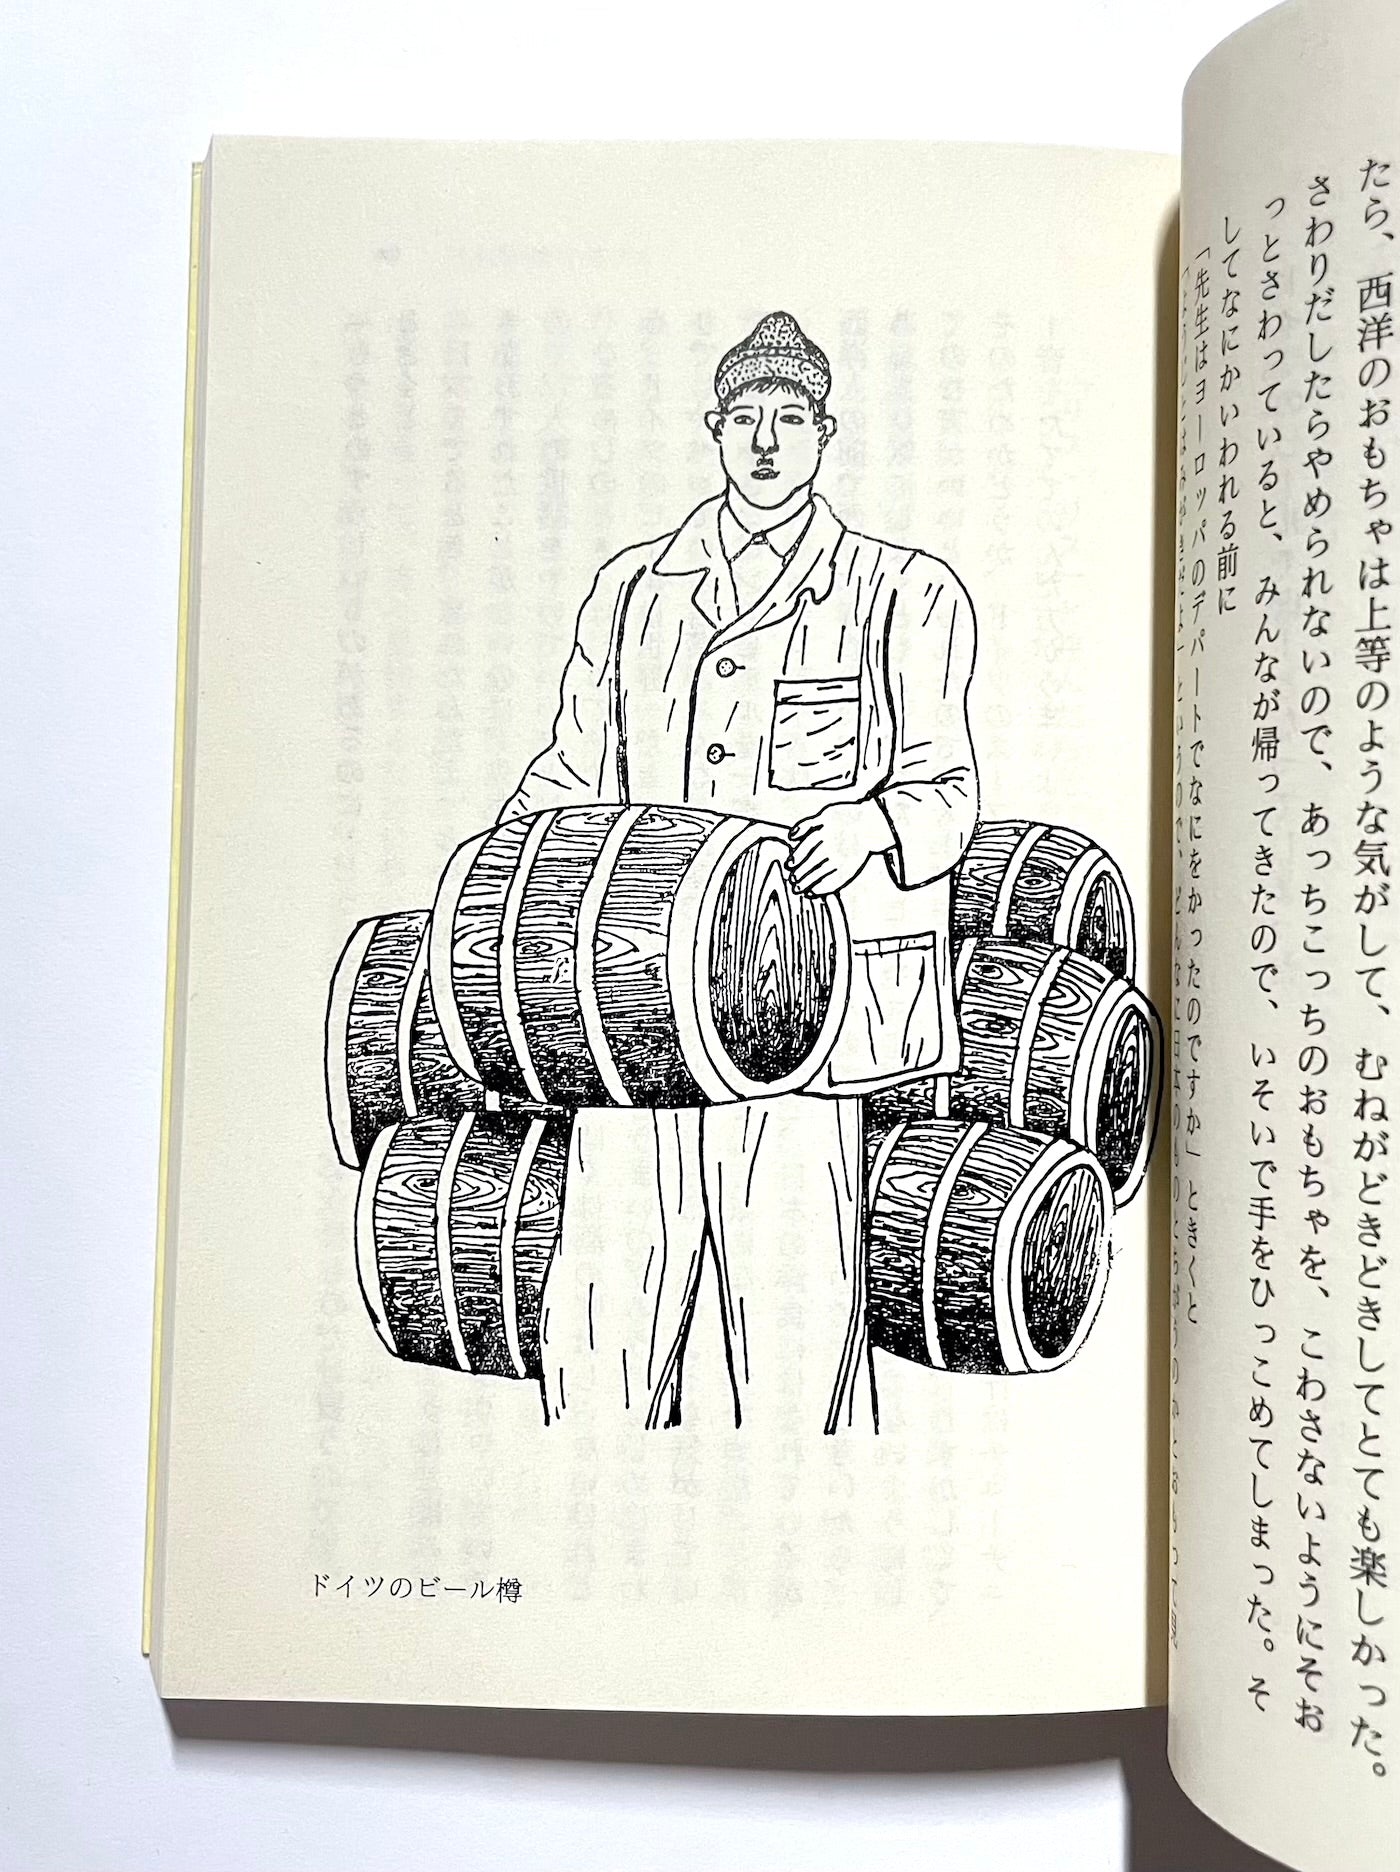 たら、西洋のおもちゃは上等のような気がして、むねがどきどきしてとても楽しかった。
さわりだしたらやめられないので、あっちこっちのおもちゃを、こわさないようにそお
っとさわっていると、みんなが帰ってきたので、いそいで手をひっこめてしまった。そ
してなにかいわれる前に
「先生はヨーロッパのデパートでなにをかったのですか」ときくと
ドイツのビール樽